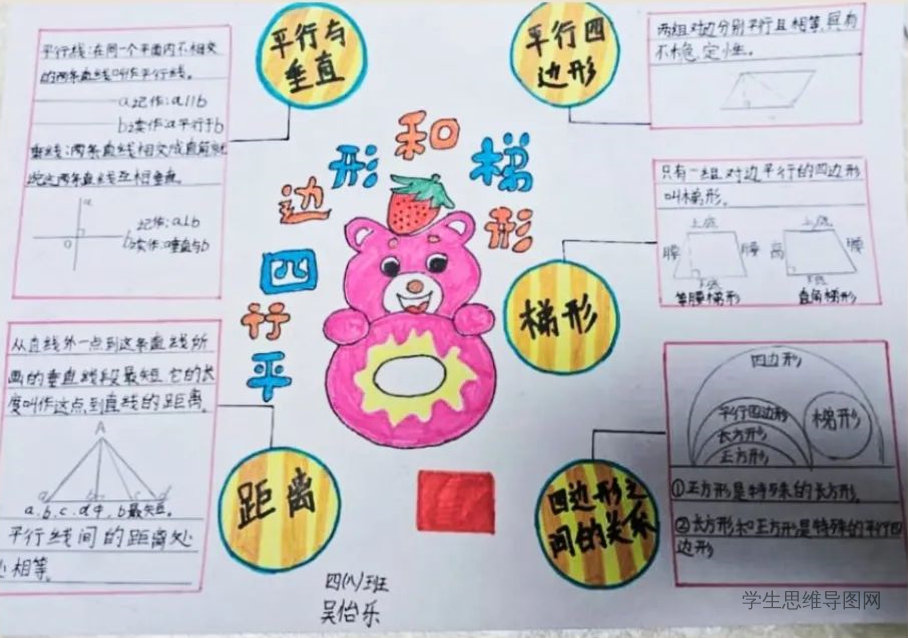 平行四边形和梯形
平行与
垂直
平行线:在同一个平面内不相交
的两条直线叫作平行线。
a记作:a//b
b读作:a平行于b
垂线:两条直线相交成直角就
说这两条直线互相垂直。
a
记作:a⊥b
o
b读作:a垂直与b
距离
从直线外一点到这条直线所
画的垂直线段最短,它的长
度叫作这点到直线的距离。
A
a b c d
a.b.c.d中,b最短。
平行线间的距离处
处相等。
平行四
边形
两组对边分别平行且相等,具有
不稳定性。
梯形
只有一组对边平行的四边形
叫梯形。
上底 上底
腰 腰 高 腰
下底 下底
等腰梯形 直角梯形
四边形之
间的关系
四边形
平行四边形 梯形
长方形
正方形
①正方形是特殊的长方形。
②长方形和正方形是特殊的平行四
边形
四(八)班
吴怡乐
学生思维导图网